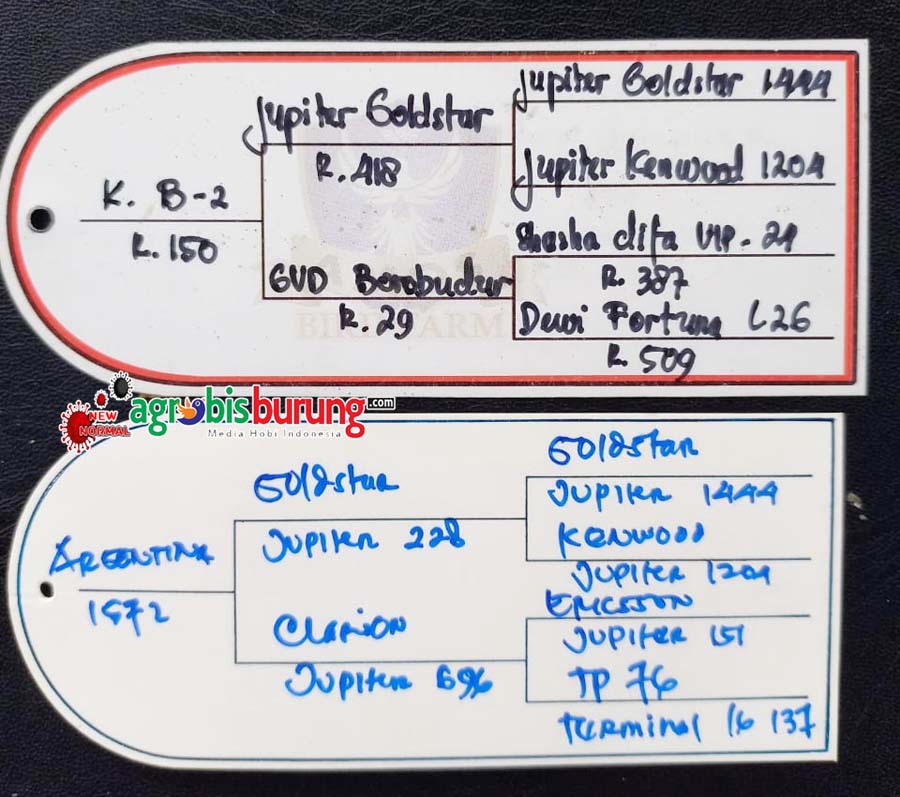 Jupiter Goldstar 1444
Jupiter Goldstar
R. 418
Jupiter Kenwood 1204
K. B-2
R. 150
Shasha difa VIP - 24
R. 387
GVD Borobudur
R. 29
Dewi Fortuna L26
R. 509
NEW NORMAL
agrobisburung.com
Media Hobi Indonesia
GOldstar
GOldstar
JUPITER 1444
JUPITER 228
KENWOOD
JUPITER 1204
ARGENTINA
1572
ERICSSON
CLARION
JUPITER 151
JUPITER 696
TP 76
TERMINAL 16 137